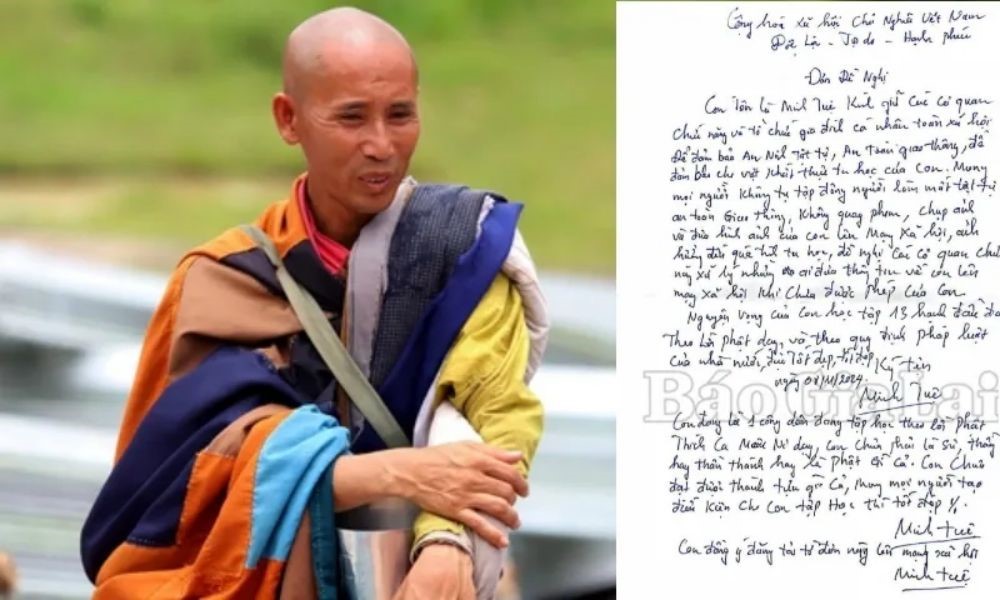 Cộng hoà xã hội Chủ Nghĩa Việt Nam
Độc Lập - Tự do - Hạnh phúc
Đơn Đề Nghị
Con tên là Minh Tuệ Kính gửi Các cơ quan
chức năng và tổ chức gia đình cá nhân toàn xã hội
Để đảm bảo An Ninh Trật tự, An toàn giao thông, để
đảm bảo cho việc khất thực tu học của Con. Mong
mọi người không tụ tập đông người làm mất trật tự
an toàn Giao thông, không quay phim, chụp ảnh
và đưa hình ảnh của con lên mạng xã hội, ảnh
hưởng đến quá trình tu học, đề nghị các cơ quan chức
năng xử lý những ai đưa thông tin về con lên
mạng xã hội khi chưa được phép của Con
Nguyện vọng của Con học tập 13 hạnh đầu đà
Theo lời phật dạy, và theo quy định pháp luật
của nhà nước, tốt đẹp, Ký tên
ngày 08/11/2024
Minh Tuệ
Báo Gia Lai
Con đang là 1 công dân đang tập học theo lời Phật
Thích Ca Mâu Ni dạy, con chưa phải là sư, thầy
hay thần thánh hay là phật gì cả. Con chưa
đạt được thành tựu gì cả, mong mọi người tạo
điều kiện cho con tập học thì tốt đẹp ạ.
Minh Tuệ
Con đồng ý đăng tải tờ đơn này lên mạng xã hội
Minh Tuệ